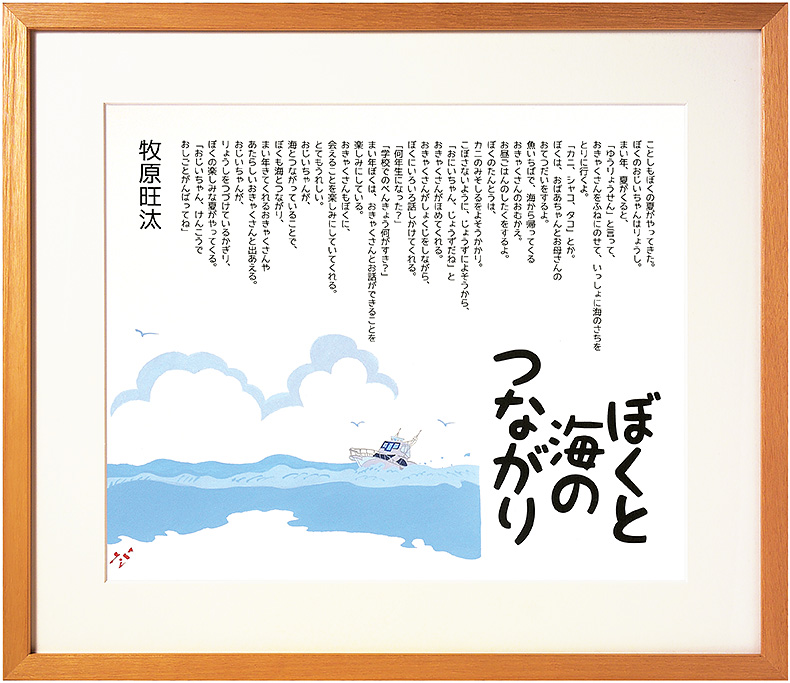 ぼくと
海の
つながり
ことしもぼくの夏がやってきた。
ぼくのおじいちゃんはりょうし。
まい年、夏がくると、
「ゆうりょうせん」と言って、
おきゃくさんをふねにのせて、いっしょに海のさちを
とりに行くよ。
「カニ、シャコ、タコ」とか。
ぼくは、おばあちゃんとお母さんの
おてつだいをするよ。
魚いちばで、海から帰ってくる
おきゃくさんのおむかえ。
お昼ごはんのしたくをするよ。
ぼくのたんとうは、
カニのみそしるをよそうかかり。
こぼさないように、じょうずによそうから、
「おにいちゃん、じょうずだね」と
おきゃくさんがほめてくれる。
おきゃくさんがしょくじをしながら、
ぼくにいろいろ話しかけてくれる。
「何年生になった？」
「学校でのべんきょう何がすき？」
まい年ぼくは、おきゃくさんとお話ができることを
楽しみにしている。
おきゃくさんもぼくに、
会えることを楽しみにしていてくれる。
とてもうれしい。
おじいちゃんが、
海とつながっていることで、
ぼくも海とつながり、
まい年きてくれるおきゃくさんや
あたらしいおきゃくさんと出あえる。
おじいちゃんが、
りょうしをつづけているかぎり、
ぼくの楽しみな夏がやってくる。
「おじいちゃん、けんこうで
おしごとがんばってね」
牧原旺汰